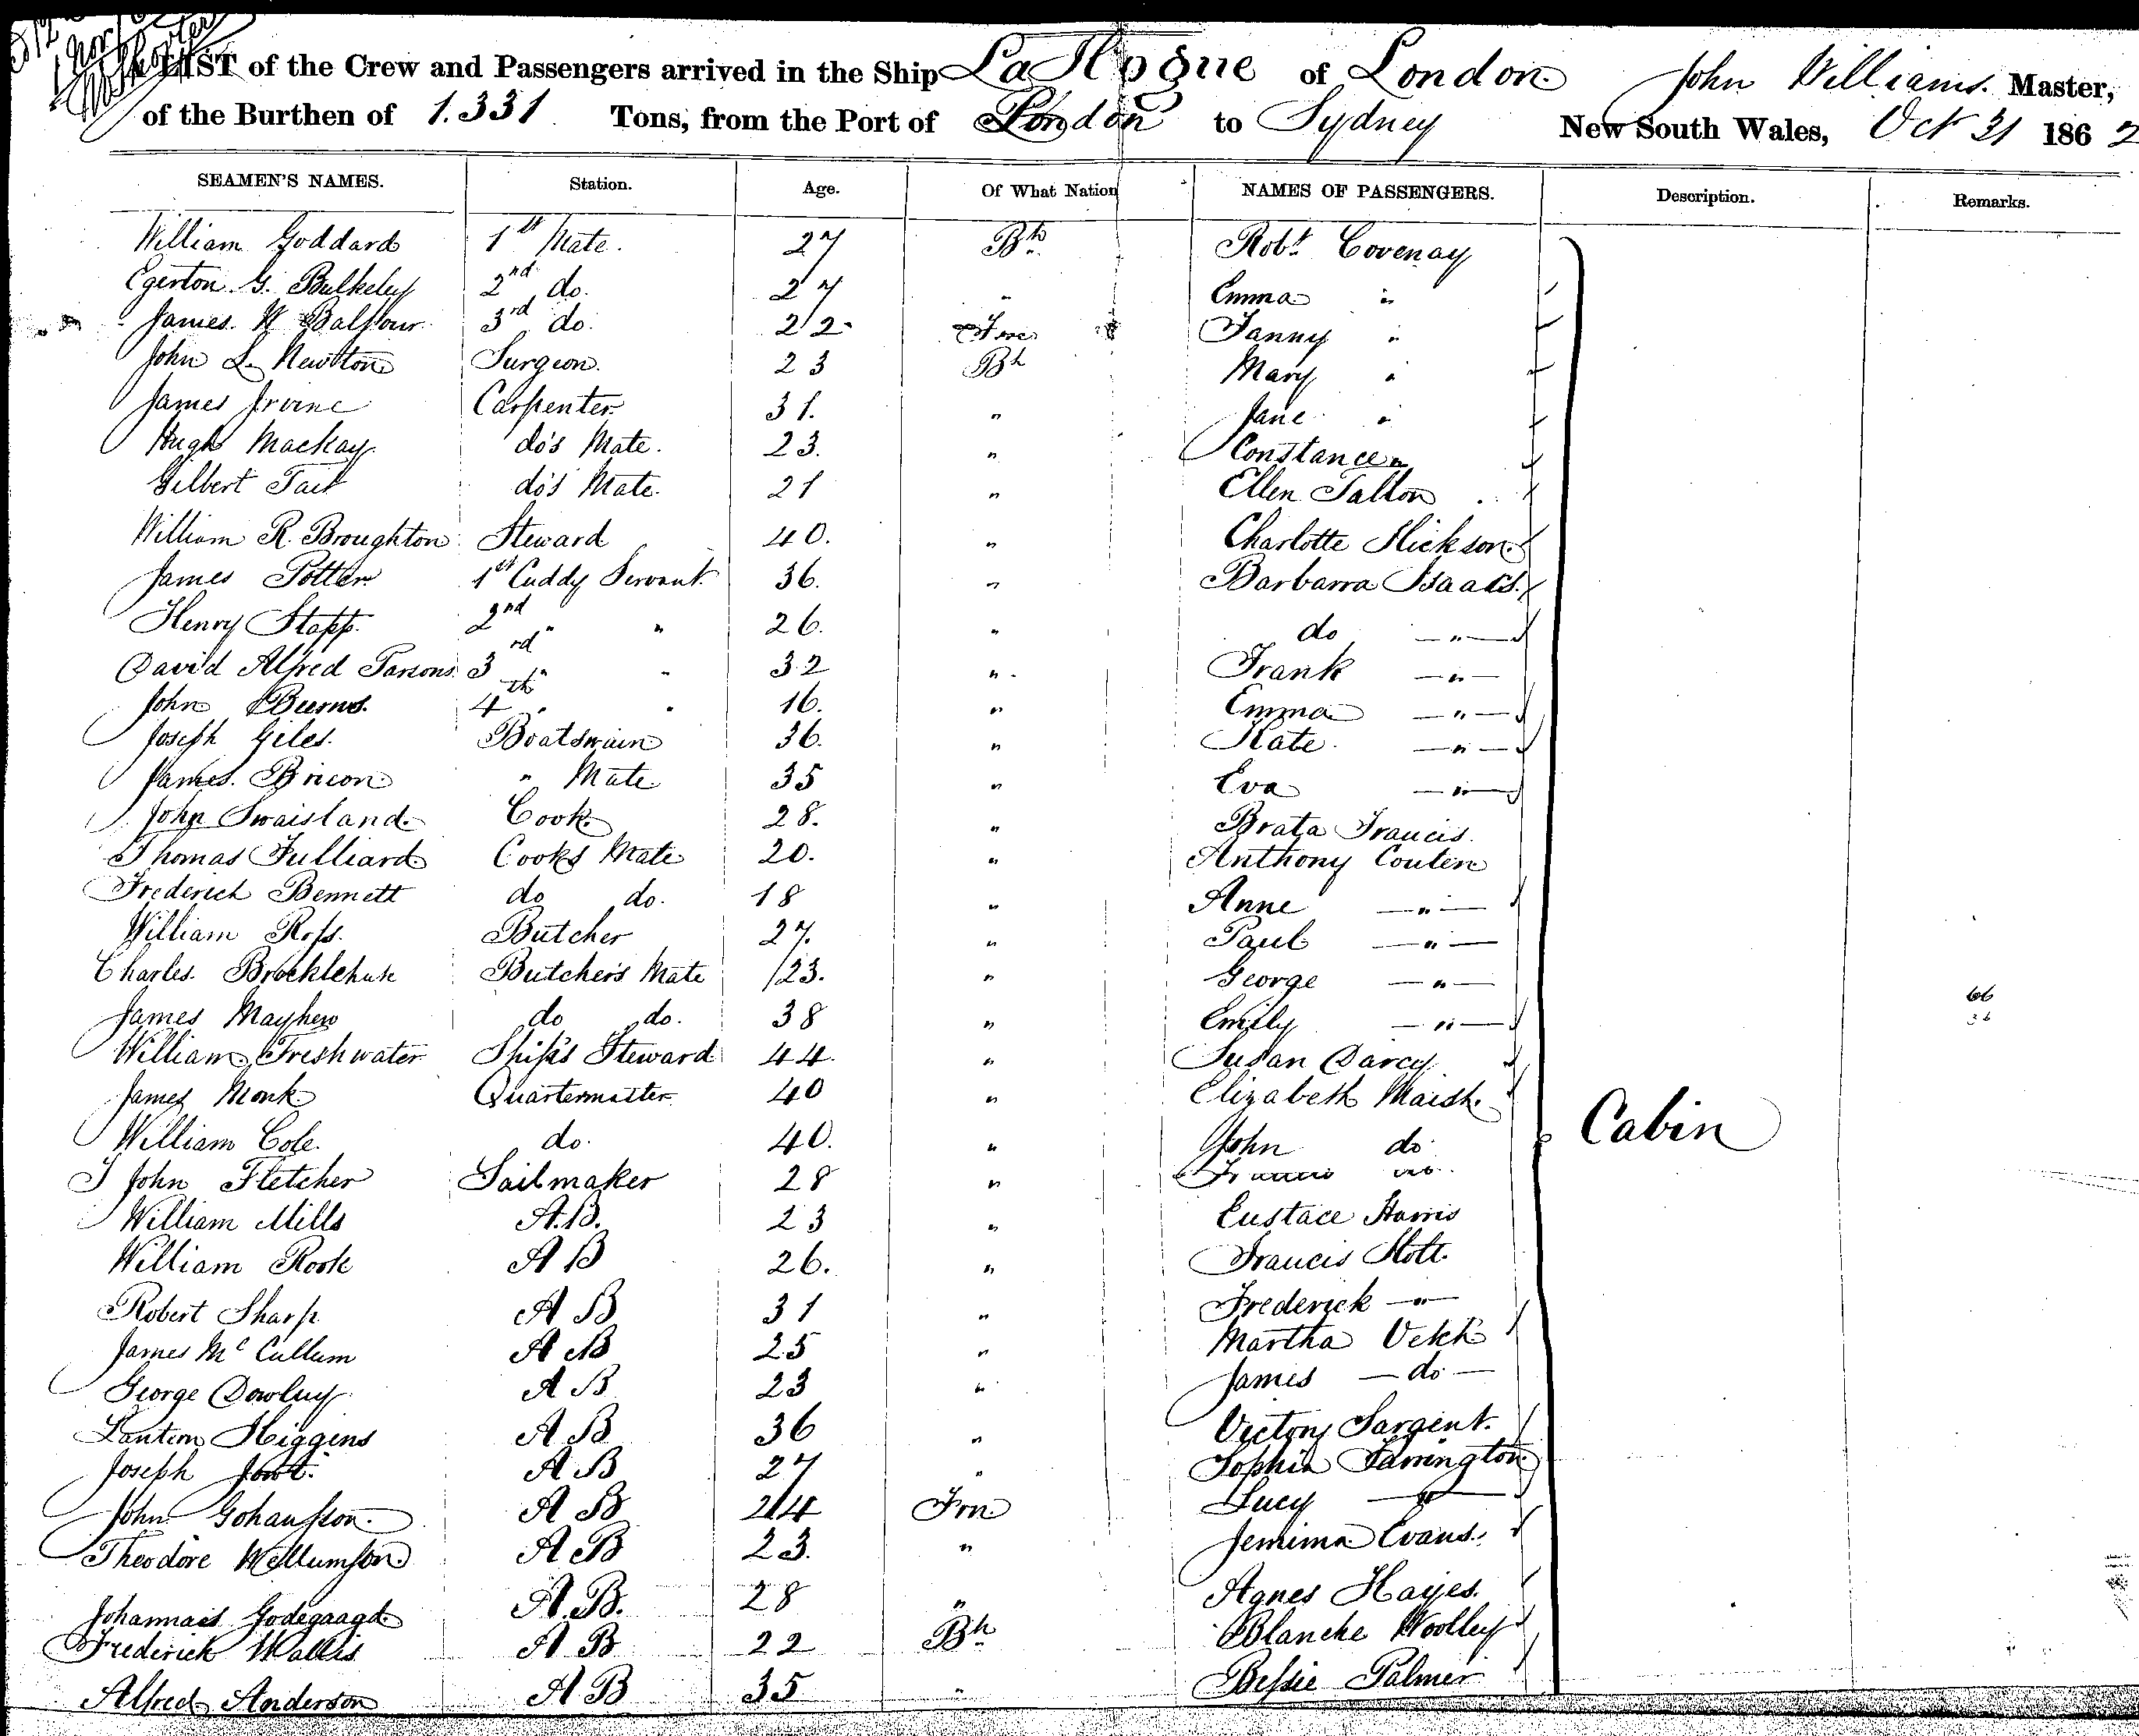 LIST of the Crew and Passengers arrived in the Ship La Hogue of London John Williams Master,
of the Burthen of 1.331 Tons, from the Port of London to Sydney New South Wales, Oct 31 1862
SEAMEN'S NAMES. Station. Age. Of What Nation NAMES OF PASSENGERS. Description. Remarks.
William Goddard 1st Mate. 27 Bh Robt Covenay
Egerton G. Bulkeley 2nd do. 27 " Emma "
James W Balfour 3rd do. 22 Fanny "
John L. Newton Surgeon. 23 Bh Mary "
James Irvine Carpenter 31. " Jane "
Hugh Mackay do's Mate. 23. " Constance "
Gilbert Tait do's Mate. 21 " Ellen Talton
William R. Broughton Steward 40. " Charlotte Hickson
James Potter 1st Cuddy Servant 36. " Barbarra Isaacs.
Henry Stapp. 2nd " " 26. " do — " —
David Alfred Parsons 3rd " " 32 " Frank — " —
John Burns. 4th " " 16. " Emma — " —
Joseph Giles. Boatswain 36. " Kate. — " —
James. Bricon. " Mate 35 " Eva — " —
John Swaisland. Cook. 28. " Brata Francis.
Thomas Fulliard Cooks Mate 20. " Anthony Couten
Frederick Bennett do do. 18 " Anne — " —
William Ross. Butcher 27. " Paul — " —
Charles. Brocklehurst Butcher's Mate 23. " George — " —
James Mayhew do do. 38 " Emily — " —
William Freshwater Ship's Steward 44. " Susan Darcy
James Monk Quartermaster 40 " Elizabeth Marsh. Cabin
William Cole. do. 40. " John do
J John Fletcher Sailmaker 28 "
William Mills A.B. 23 " Eustace Harris
William Rook A B 26. " Francis Stott.
Robert Sharp A B 31 " Frederick — " —
James Mc Cullum A B 25 " Martha Veitch
George Dowluy A B 23 " James — do —
Lantim Higgins A B 36 " Victory Sargent.
Joseph A B 27 " Sophia Farrington
John Gohansson. A B 24 Frn Lucy — " —
Theodore Wellumson. A B 23. " Jemima Evans.
Johannais Godegaagd A.B. 28 " Agnes Hayes.
Frederick Wallis A B 22 Bh Blanche Woolley
Alfred Anderson A B 35 " Bessie Palmer